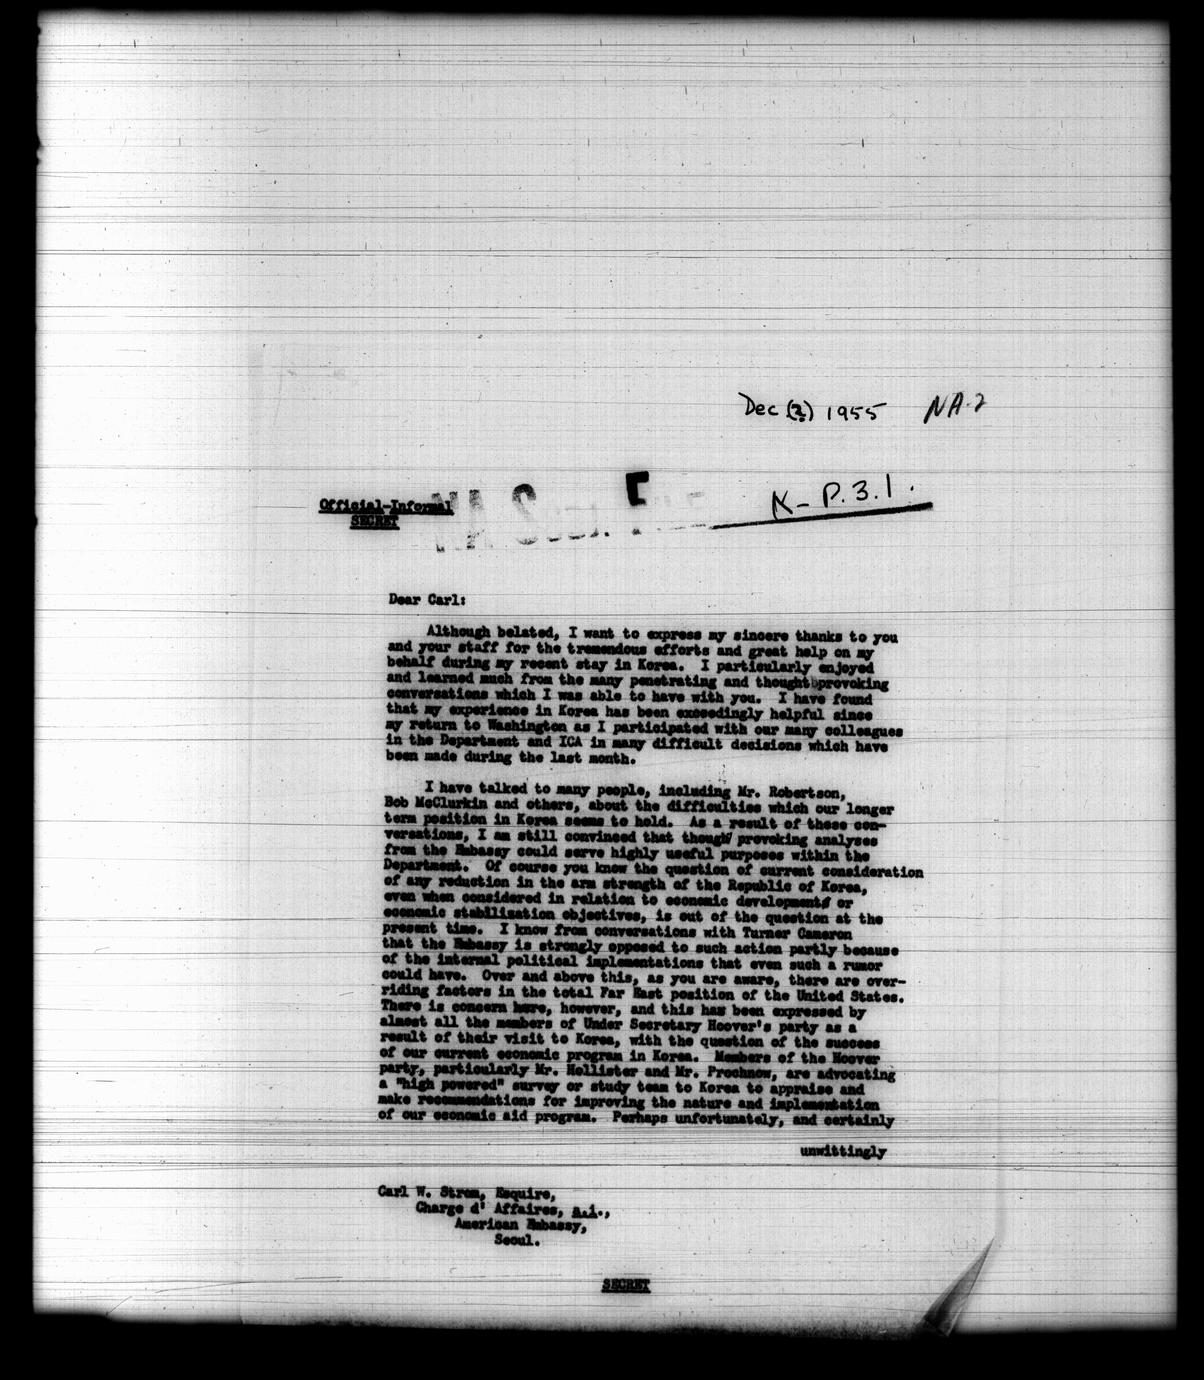 Dec (?) 1955 NA-2
K-P.3.1.
Official-Informal
SECRET
Dear Carl:
Although belated, I want to express my sincere thanks to you
and your staff for the tremendous efforts and great help on my
behalf during my recent stay in Korea. I particularly enjoyed
and learned much from the many penetrating and thought provoking
conversations which I was able to have with you. I have found
that my experience in Korea has been exceedingly helpful since
my return to Washington as I participated with our many colleagues
in the Department and ICA in many difficult decisions which have
been made during the last month.
I have talked to many people, including Mr. Robertson,
Bob McClurkin and others, about the difficulties which our longer
term position in Korea seems to hold. As a result of these con-
versations, I am still convinced that though provoking analyses
from the Embassy could serve highly useful purposes within the
Department. Of course you know the question of current consideration
of any reduction in the arm strength of the Republic of Korea,
even when considered in relation to economic development or
economic stabilization objectives, is out of the question at the
present time. I know from conversations with Turner Cameron
that the Embassy is strongly opposed to such action partly because
of the internal political implementations that even such a rumor
could have. Over and above this, as you are aware, there are over-
riding factors in the total Far East position of the United States.
There is concern here, however, and this has been expressed by
almost all the members of Under Secretary Hoover's party as a
result of their visit to Korea, with the question of the success
of our current economic program in Korea. Members of the Hoover
party, particularly Mr. Hollister and Mr. Prochnow, are advocating
a "high powered" survey or study team to Korea to appraise and
make recommendations for improving the nature and implementation
of our economic aid program. Perhaps unfortunately, and certainly
unwittingly
Carl W. Strom, Esquire,
Charge d' Affaires, a.i.,
American Embassy,
Seoul.
SECRET